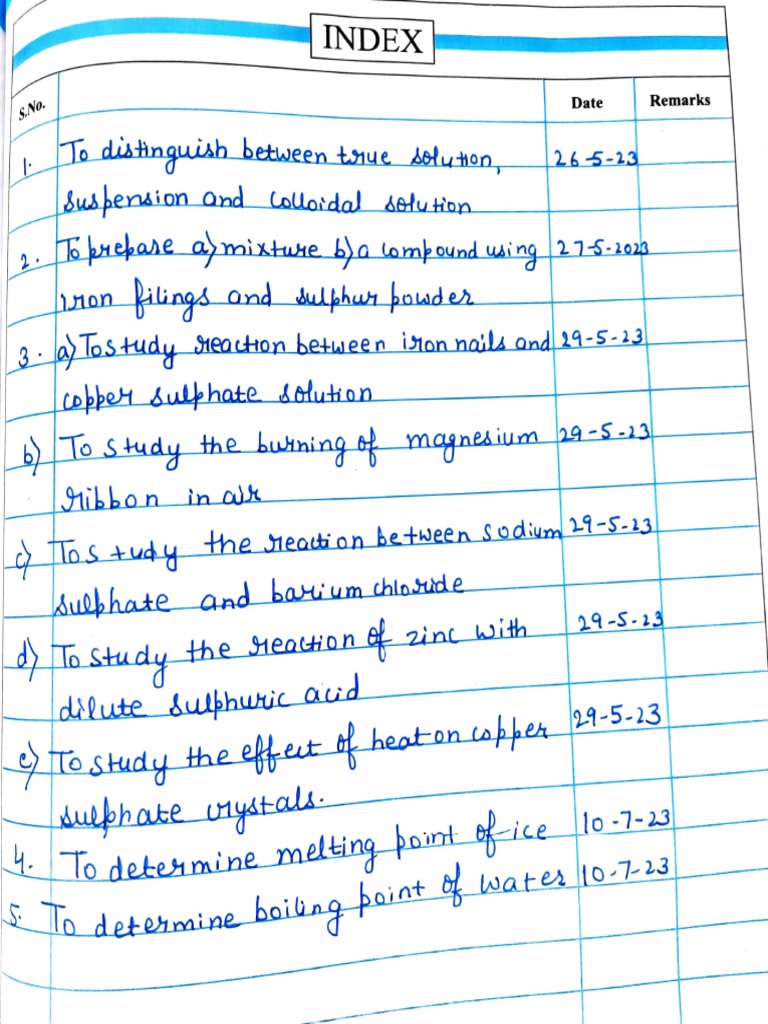 INDEX
S.No. Date Remarks
1. To distinguish between true solution, 26-5-23
suspension and colloidal solution
2. To prepare a) mixture b) a compound using 27-5-2023
iron filings and sulphur powder
3. a) To study reaction between iron nails and 29-5-23
copper sulphate solution
b) To study the burning of magnesium 29-5-23
ribbon in air
c) To study the reaction between sodium 29-5-23
sulphate and barium chloride
d) To study the reaction of zinc with 29-5-23
dilute sulphuric acid
e) To study the effect of heat on copper 29-5-23
sulphate crystals.
4. To determine melting point of ice 10-7-23
5. To determine boiling point of water 10-7-23